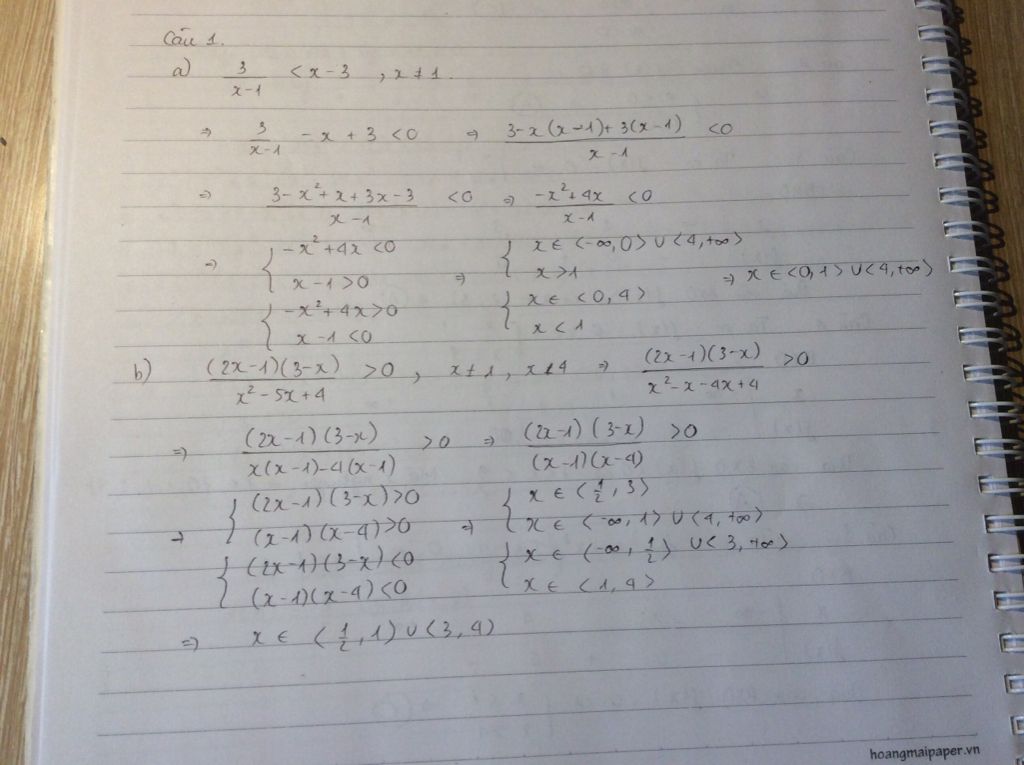 Câu 1.
a) 3/(x-1) < x-3 , x ≠ 1.
⇒ 3/(x-1) - x + 3 < 0 ⇒ (3-x(x-1)+3(x-1))/(x-1) < 0
⇒ (3-x²+x+3x-3)/(x-1) < 0 ⇒ (-x²+4x)/(x-1) < 0
⇒ { -x²+4x < 0 ⇒ { x ∈ ⟨-∞, 0⟩ ∪ ⟨4, +∞⟩
x-1 > 0 x > 1 ⇒ x ∈ ⟨0, 1⟩ ∪ ⟨4, +∞⟩
{ -x²+4x > 0 { x ∈ ⟨0, 4⟩
x-1 < 0 x < 1
b) ((2x-1)(3-x))/(x²-5x+4) > 0 , x ≠ 1, x ≠ 4 ⇒ ((2x-1)(3-x))/(x²-x-4x+4) > 0
⇒ ((2x-1)(3-x))/(x(x-1)-4(x-1)) > 0 ⇒ ((2x-1)(3-x))/((x-1)(x-4)) > 0
⇒ { (2x-1)(3-x) > 0 ⇒ { x ∈ ⟨1/2, 3⟩
(x-1)(x-4) > 0 x ∈ ⟨-∞, 1⟩ ∪ ⟨4, +∞⟩
{ (2x-1)(3-x) < 0 { x ∈ ⟨-∞, 1/2⟩ ∪ ⟨3, +∞⟩
(x-1)(x-4) < 0 x ∈ ⟨1, 4⟩
⇒ x ∈ (1/2, 1) ∪ (3, 4)
hoangmaipaper.vn